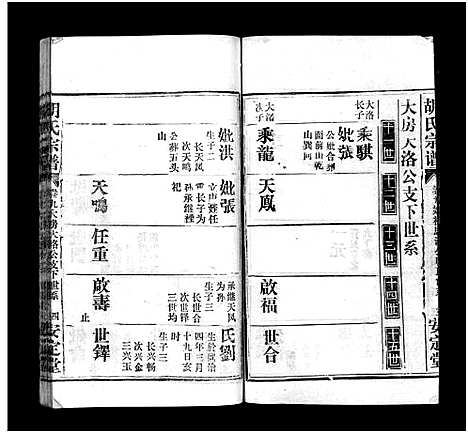 胡氏宗譜
安定堂
大房大洛公支下世系
十一世
十二世
十三世
十四世
十五世
大洛長子
乘騏
妣張
公妣合葬
面前山乾
山巽向
啟福
世合
大洛次子
乘龍
天鳳
妣洪
生子二
長天鳳
次天鳴
公葬五头
山
妣張
立山聲任
重長子為
孙承继承
祀
天鳴
任重
啟壽
止
世鐸
承继天凤
为孫
生子三
長世合
三世均
氏劉
生於咸治
四年三月
十九日亥
生子三
長兴暢
次兴金
三兴玉
胡氏宗譜
大房大洛公支下世系
四
安定堂